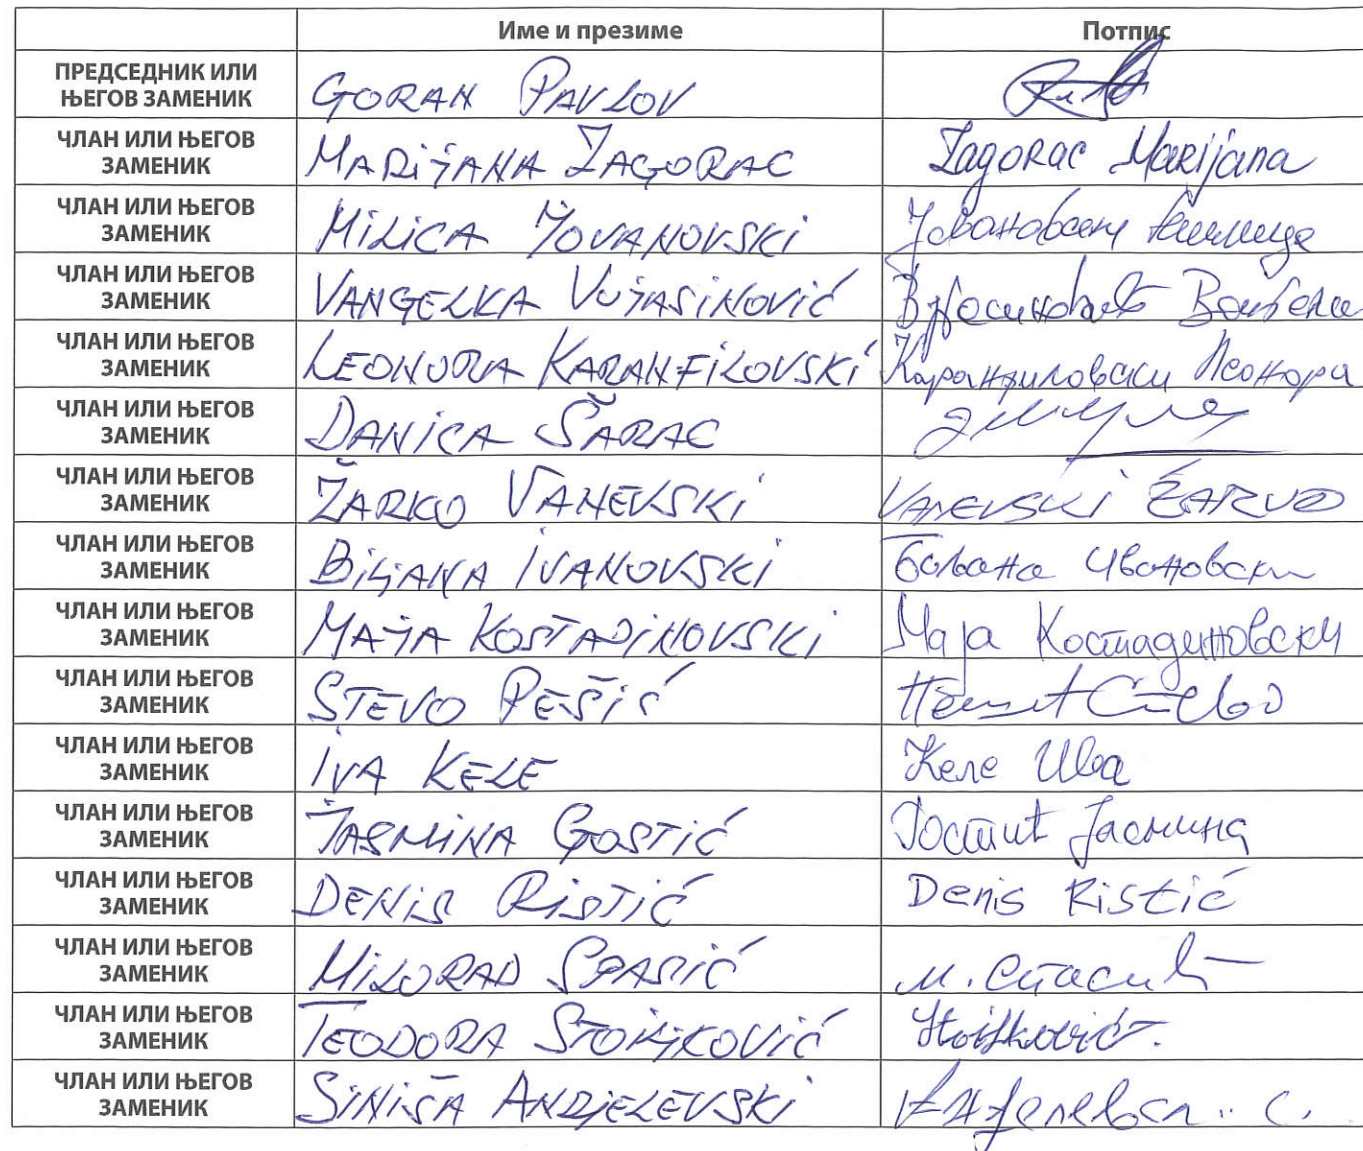 Име и презиме Потпис
ПРЕДСЕДНИК ИЛИ
ЊЕГОВ ЗАМЕНИК
GORAN PAVLOV
ЧЛАН ИЛИ ЊЕГОВ
ЗАМЕНИК
MARIJANA ZAGORAC Zagorac Marijana
ЧЛАН ИЛИ ЊЕГОВ
ЗАМЕНИК
MILICA JOVANOVSKI Јовановски Милица
ЧЛАН ИЛИ ЊЕГОВ
ЗАМЕНИК
VANGELKA VUJASINOVIĆ
ЧЛАН ИЛИ ЊЕГОВ
ЗАМЕНИК
LEONORA KARANFILOVSKI Каранфиловски Леонора
ЧЛАН ИЛИ ЊЕГОВ
ЗАМЕНИК
DANICA ŠARAC
ЧЛАН ИЛИ ЊЕГОВ
ЗАМЕНИК
ŽARKO VANEVSKI VANEVSKI ŽARKO
ЧЛАН ИЛИ ЊЕГОВ
ЗАМЕНИК
BILJANA IVANOVSKI Ивановски
ЧЛАН ИЛИ ЊЕГОВ
ЗАМЕНИК
MAJA KOSTADINOVSKI Маја Костадиновски
ЧЛАН ИЛИ ЊЕГОВ
ЗАМЕНИК
STEVO PEŠIĆ Пешић Стево
ЧЛАН ИЛИ ЊЕГОВ
ЗАМЕНИК
IVA KELE Келе Ива
ЧЛАН ИЛИ ЊЕГОВ
ЗАМЕНИК
JASMINA GOSTIĆ Гостић Јасмина
ЧЛАН ИЛИ ЊЕГОВ
ЗАМЕНИК
DENIS RISTIĆ Denis Ristić
ЧЛАН ИЛИ ЊЕГОВ
ЗАМЕНИК
MILORAD SPASIĆ М. Спасић
ЧЛАН ИЛИ ЊЕГОВ
ЗАМЕНИК
TEODORA STOJKOVIĆ Stojković T.
ЧЛАН ИЛИ ЊЕГОВ
ЗАМЕНИК
SINIŠA ANDJELEVSKI С.